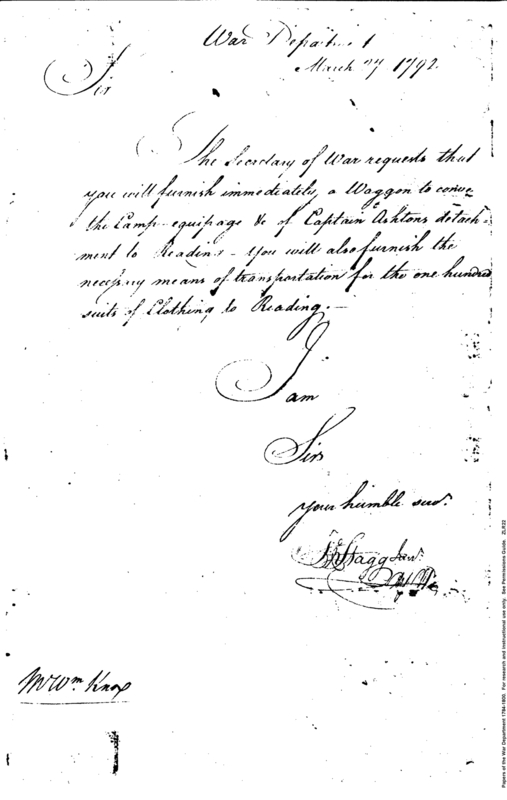 War Department
March 27 1792
Sir
The Secretary of War requests that
you will furnish immediately a Waggon to convey
the Camp-equipage &c of Captain Ashtons detach-
ment to Reading - you will also furnish the
necessary means of transportation for the one hundred
suits of Clothing to Reading.-
I am
Sir
your humble servt.
Jn Stagg Junr.
Mr Wm Knox
Papers of the War Department 1784-1800. For research and instructional use only. See Permissions Guide. ZLR22